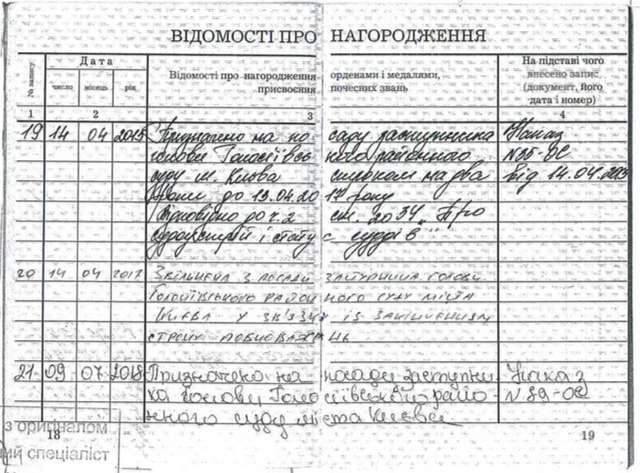 ВІДОМОСТІ ПРО НАГОРОДЖЕННЯ
№ запису
Дата
число місяць рік
Відомості про нагородження орденами і медалями,
присвоєння почесних звань
На підставі чого
внесено запис
(документ, його
дата і номер)
1 2 3 4
19 14 04 2015 Призначено на посаду заступника Наказ
голови Голосіївського районного N35-ОС
суду м. Києва строком на два від 14.04.2015
роки до 13.04.2017 року
Відповідно до ч.2 ст. 20 ЗУ „Про
судоустрій і статус суддів"
20 14 04 2017 Звільнена з посади заступника голови
Голосіївського районного суду міста
Києва у зв'язку із закінченням
строку повноважень
21 09 07 2018 Призначено на посаду заступни- Наказ
ка голови Голосіївського райо- N 89-ОС
нного суду міста Києва
з оригіналом
ий спеціаліст
18 19